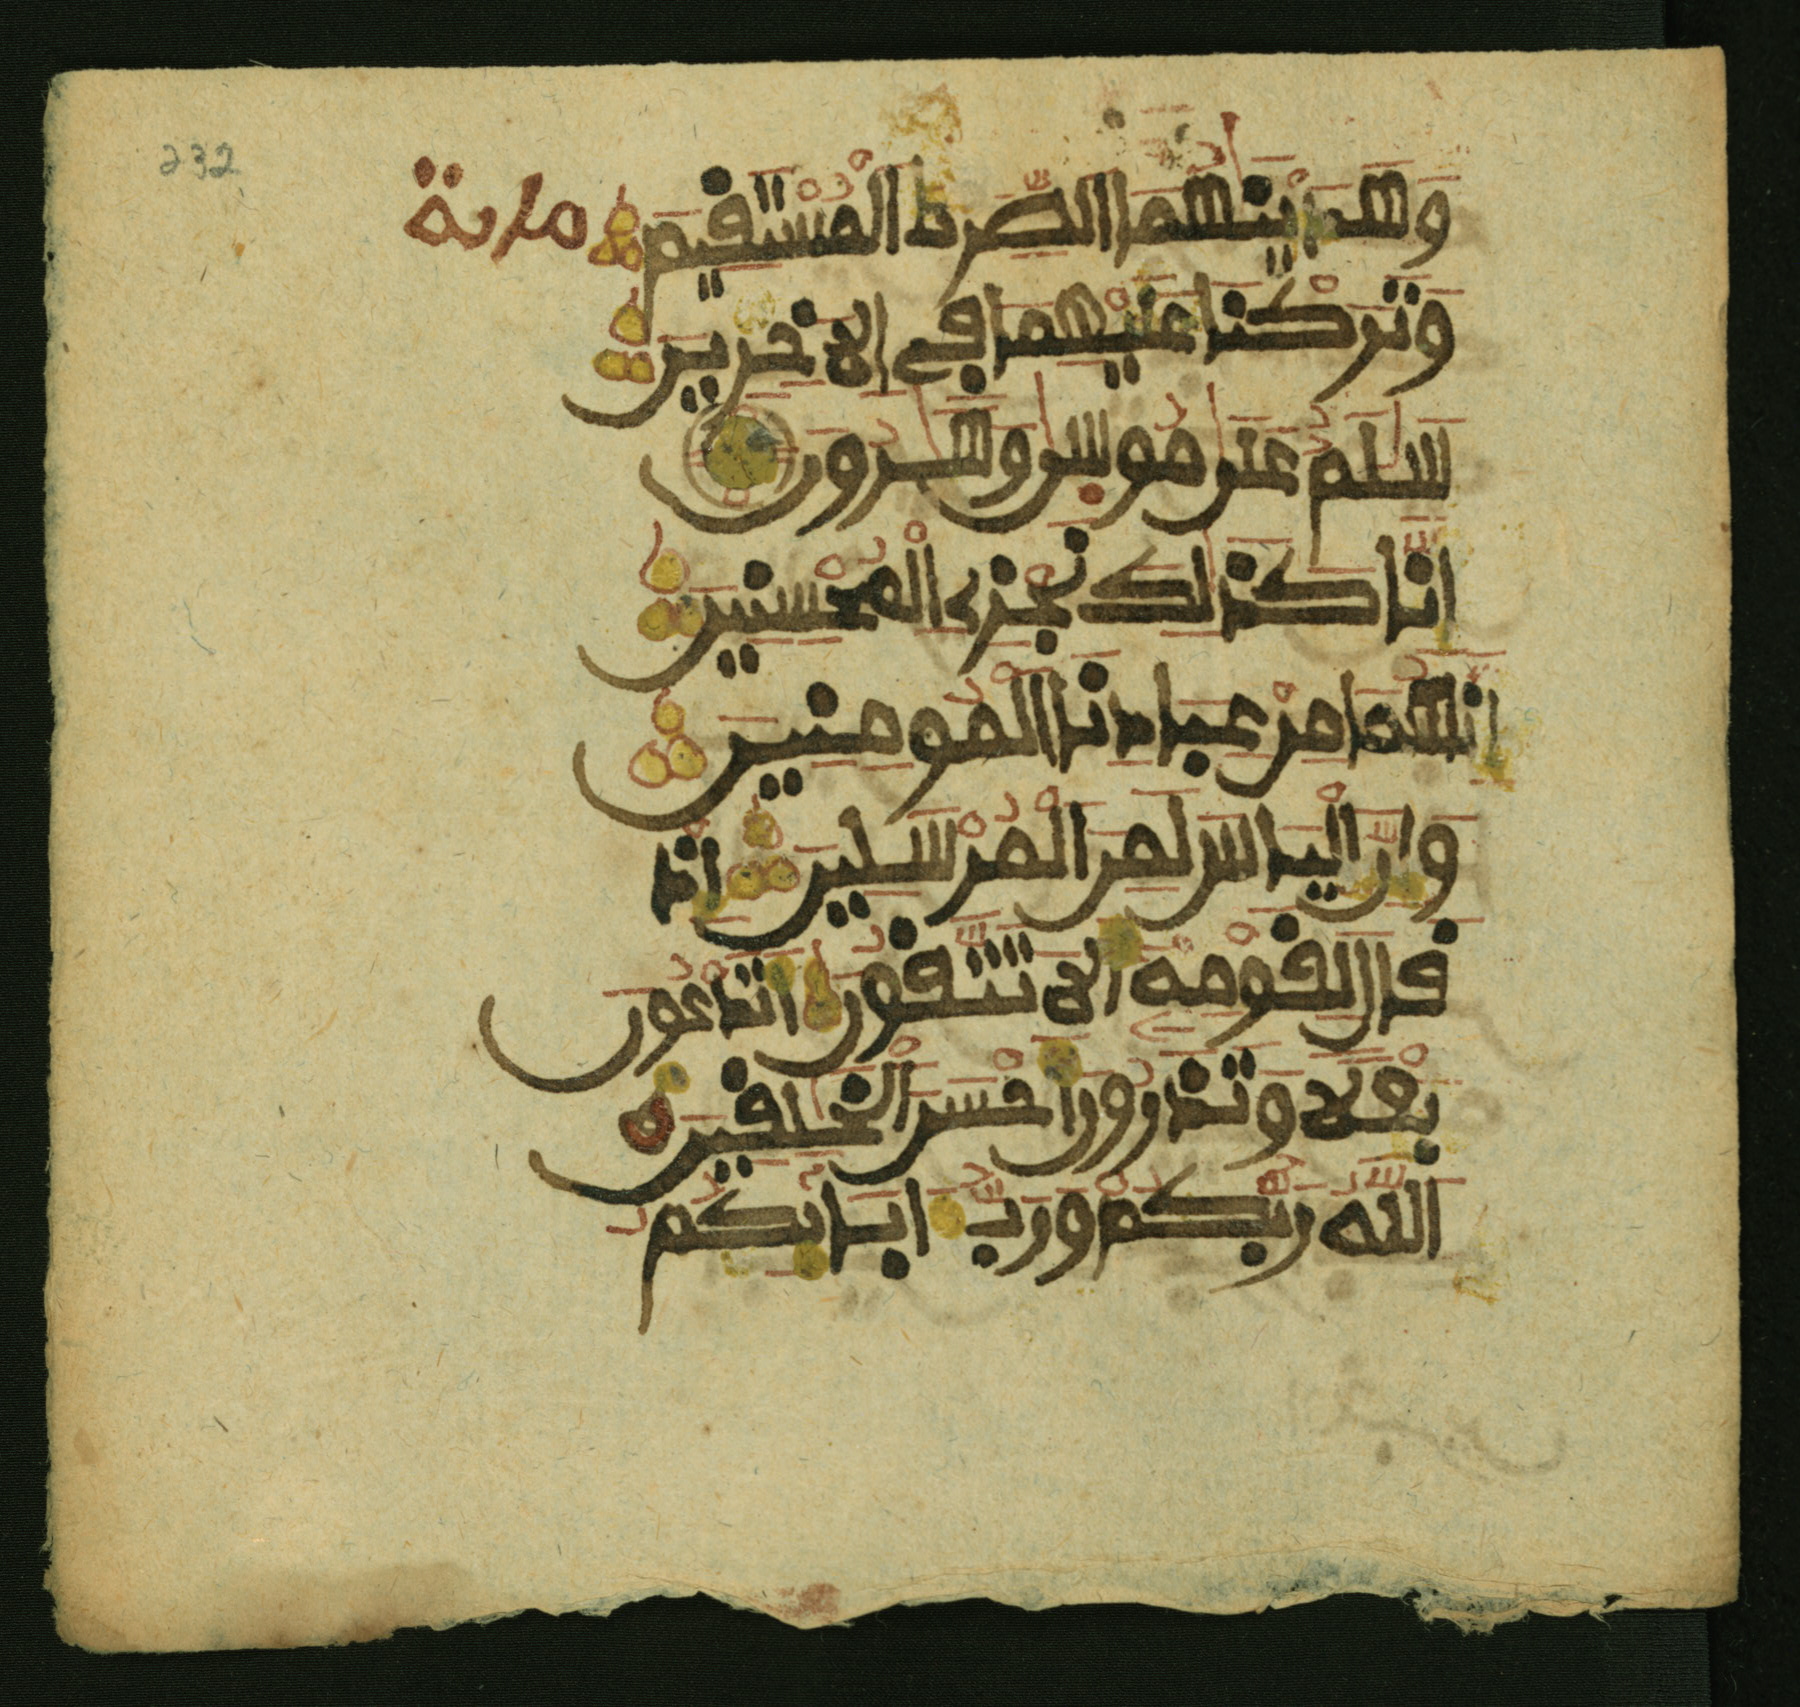 232
وهدينهما الصرط المستقيم
وتركنا عليهما في الاخرين
سلم على موسى وهرون
انا كذلك نجزى المحسنين
انهما من عبادنا المومنين
وان الياس لمن المرسلين اذ
قال لقومه الا تتقون اتدعون
بعلا وتذرون احسن الخلقين
الله ربكم ورب ابايكم